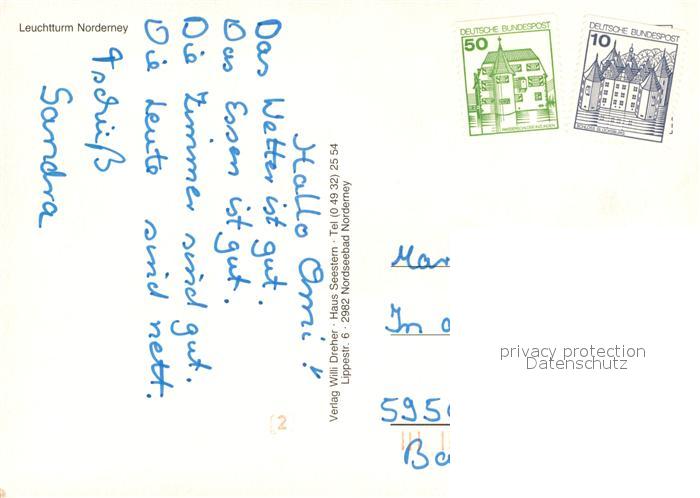 Leuchtturm Norderney
Hallo Omi!
Das Wetter ist gut.
Das Essen ist gut.
Die Zimmer sind gut.
Die Leute sind nett.
Tschüß
Sandra
Verlag Willi Dreher · Haus Seestern · Tel (0 49 32) 25 54
Lippestr. 6 · 2982 Nordseebad Norderney
DEUTSCHE BUNDESPOST
50
DEUTSCHE BUNDESPOST
10
Mar
In d
595
Ba
privacy protection
Datenschutz
2